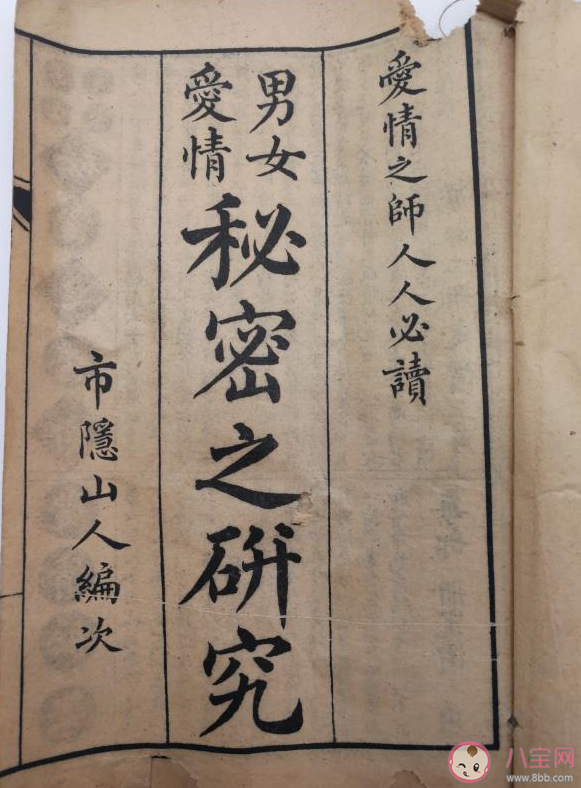 愛情之師人人必讀
男女
愛情
秘密之硏究
市隱山人編次
八宝网
www.8bb.com